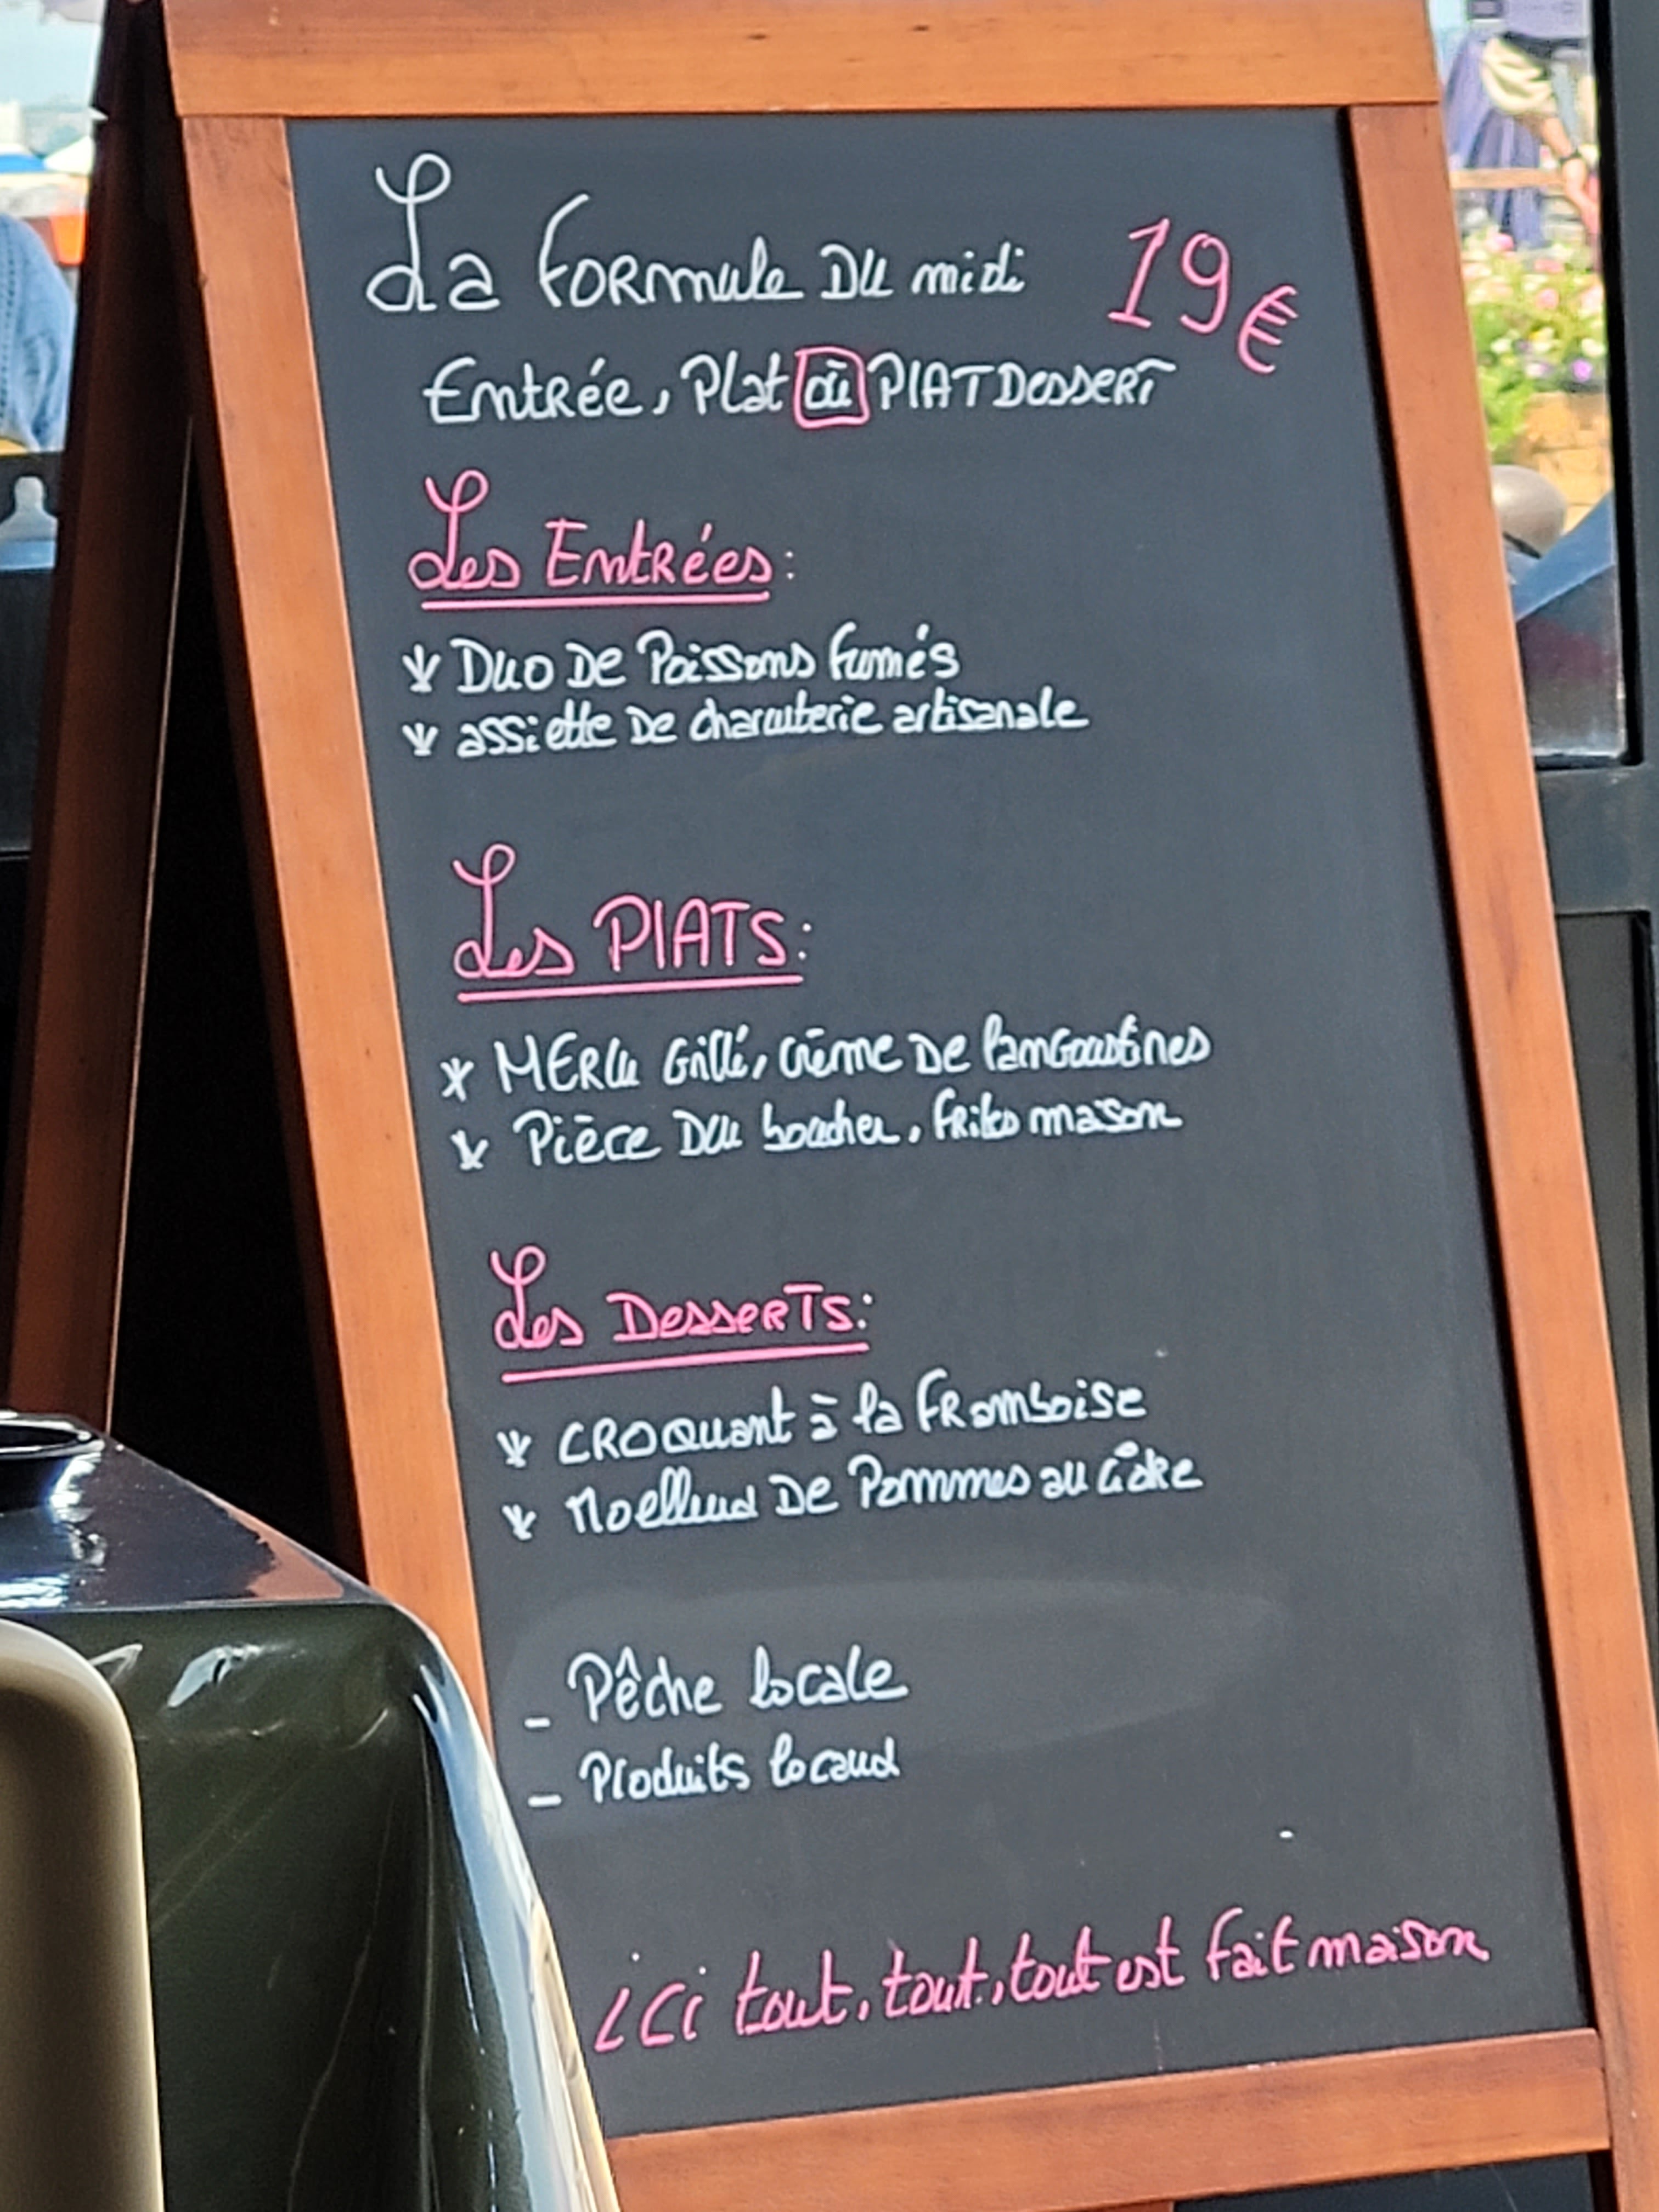 La Formule Du midi 19€
Entrée, Plat où PlAT Dessert
Les Entrées:
* Duo De Poissons fumés
* assiette De charcuterie artisanale
Les PlATS:
* MERlu Grillé, crème De langoustines
* Pièce Du boucher, frites maison
Les Desserts:
* CROQuant à la FRamboise
* Moelleux De Pommes au Cidre
- Pêche locale
- Produits locaux
ici tout, tout, tout est fait maison